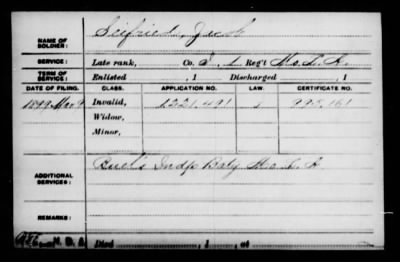 NAME OF SOLDIER: Seifried, Jacob
SERVICE: Late rank, Co. I, 1 Reg't Mo. L. A.
TERM OF SERVICE: Enlisted , 1 Discharged , 1
DATE OF FILING. CLASS. APPLICATION NO. LAW. CERTIFICATE NO.
1899 Mar 9 Invalid, 1221,491 995,161
Widow,
Minor,
ADDITIONAL SERVICES: Buel's Indp Baty Mo. L. A.
REMARKS:
Died , 1 , at